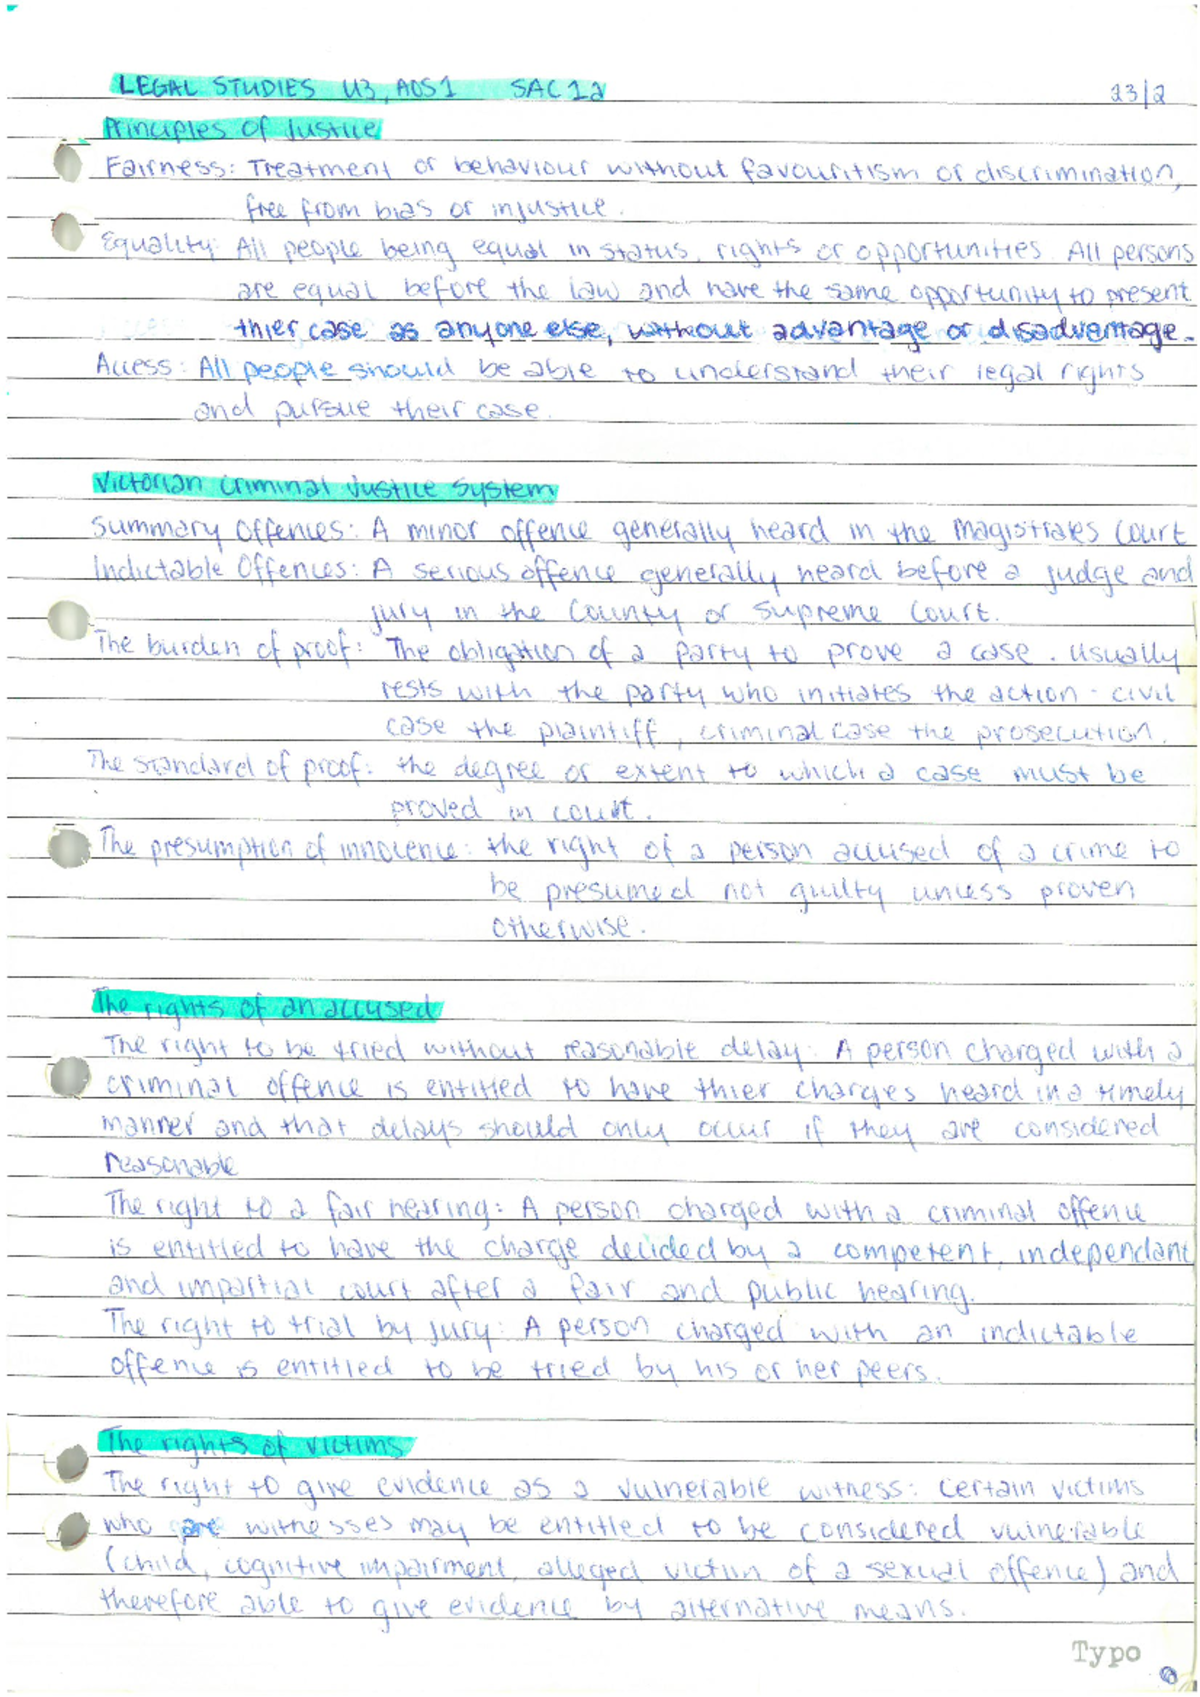 LEGAL STUDIES U3, AOS1 SAC 1a 23/2
Principles of Justice
Fairness: Treatment or behaviour without favouritism or discrimination,
free from bias or injustice.
Equality: All people being equal in status, rights or opportunities. All persons
are equal before the law and have the same opportunity to present
thier case as anyone else, without advantage or disadvantage.
Access: All people should be able to understand their legal rights
and pursue their case.
Victorian Criminal Justice System
Summary Offences: A minor offence generally heard in the Magistrates Court
Indictable Offences: A serious offence generally heard before a judge and
jury in the County or Supreme Court.
The burden of proof: The obligation of a party to prove a case. Usually
rests with the party who initiates the action - civil
case the plaintiff, criminal case the prosecution.
The standard of proof: the degree or extent to which a case must be
proved in court.
The presumption of innocence: the right of a person accused of a crime to
be presumed not guilty unless proven
otherwise.
The rights of an accused
The right to be tried without reasonable delay: A person charged with a
criminal offence is entitled to have thier charges heard in a timely
manner and that delays should only occur if they are considered
reasonable
The right to a fair hearing: A person charged with a criminal offence
is entitled to have the charge decided by a competent, independant
and impartial court after a fair and public hearing.
The right to trial by jury: A person charged with an indictable
offence is entitled to be tried by his or her peers.
The rights of victims
The right to give evidence as a vulnerable witness: certain victims
who are witnesses may be entitled to be considered vulnerable
(child, cognitive impairment, alleged victim of a sexual offence) and
therefore able to give evidence by alternative means.
Typo